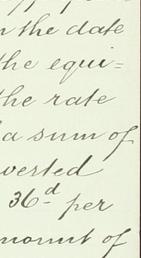 n the date
the equi=
the rate
a sum of
verted
36d per
mount of